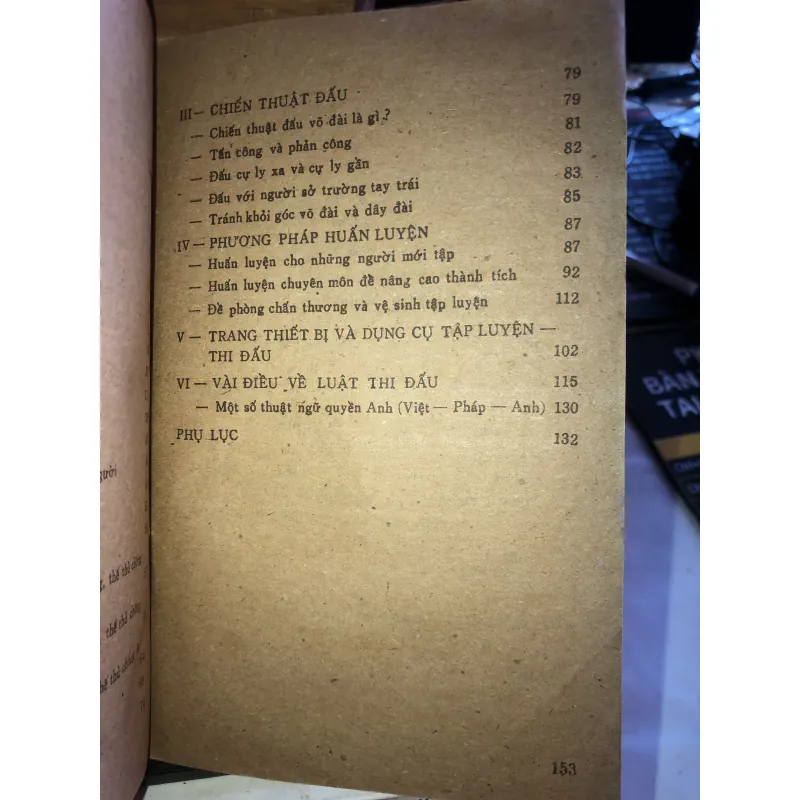 79
III — CHIẾN THUẬT ĐẤU 79
— Chiến thuật đấu võ đài là gì ? 81
— Tấn công và phản công 82
— Đấu cự ly xa và cự ly gần 83
— Đấu với người sở trường tay trái 85
— Tránh khỏi góc võ đài và dây đài
IV — PHƯƠNG PHÁP HUẤN LUYỆN 87
— Huấn luyện cho những người mới tập 87
— Huấn luyện chuyên môn để nâng cao thành tích 92
— Đề phòng chấn thương và vệ sinh tập luyện 112
V — TRANG THIẾT BỊ VÀ DỤNG CỤ TẬP LUYỆN —
THI ĐẤU 102
VI — VÀI ĐIỀU VỀ LUẬT THI ĐẤU 115
— Một số thuật ngữ quyền Anh (Việt — Pháp — Anh) 130
PHỤ LỤC 132
153
gười
thế thủ
thế thủ
thế thủ
BÀN